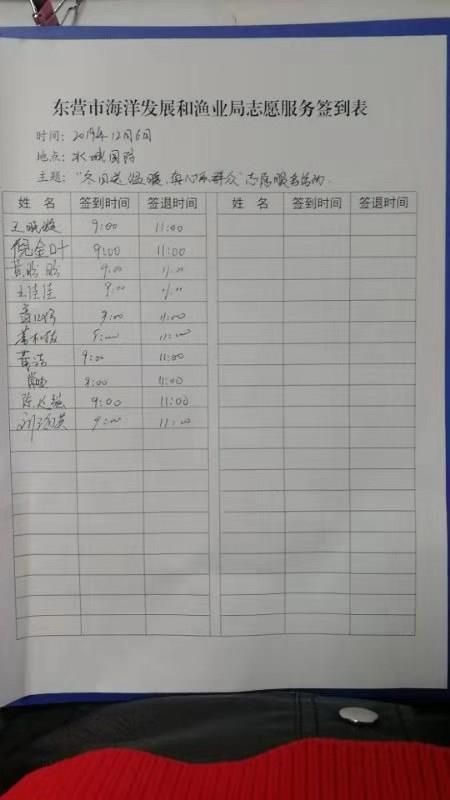 东营市海洋发展和渔业局志愿服务签到表
时间：2019年12月6日
地点：水城国际
主题："冬日送温暖，真心系群众"志愿服务活动
姓 名 签到时间 签退时间 姓 名 签到时间 签退时间
王晓璇 9:00 11:00
倪金叶 9:00 11:00
9:00 11:00
王佳佳 9:00 11:00
9:00 11:00
9:00 11:00
黄浩 9:00 11:00
9:00 11:00
陈 9:00 11:00
刘 英 9:00 11:00